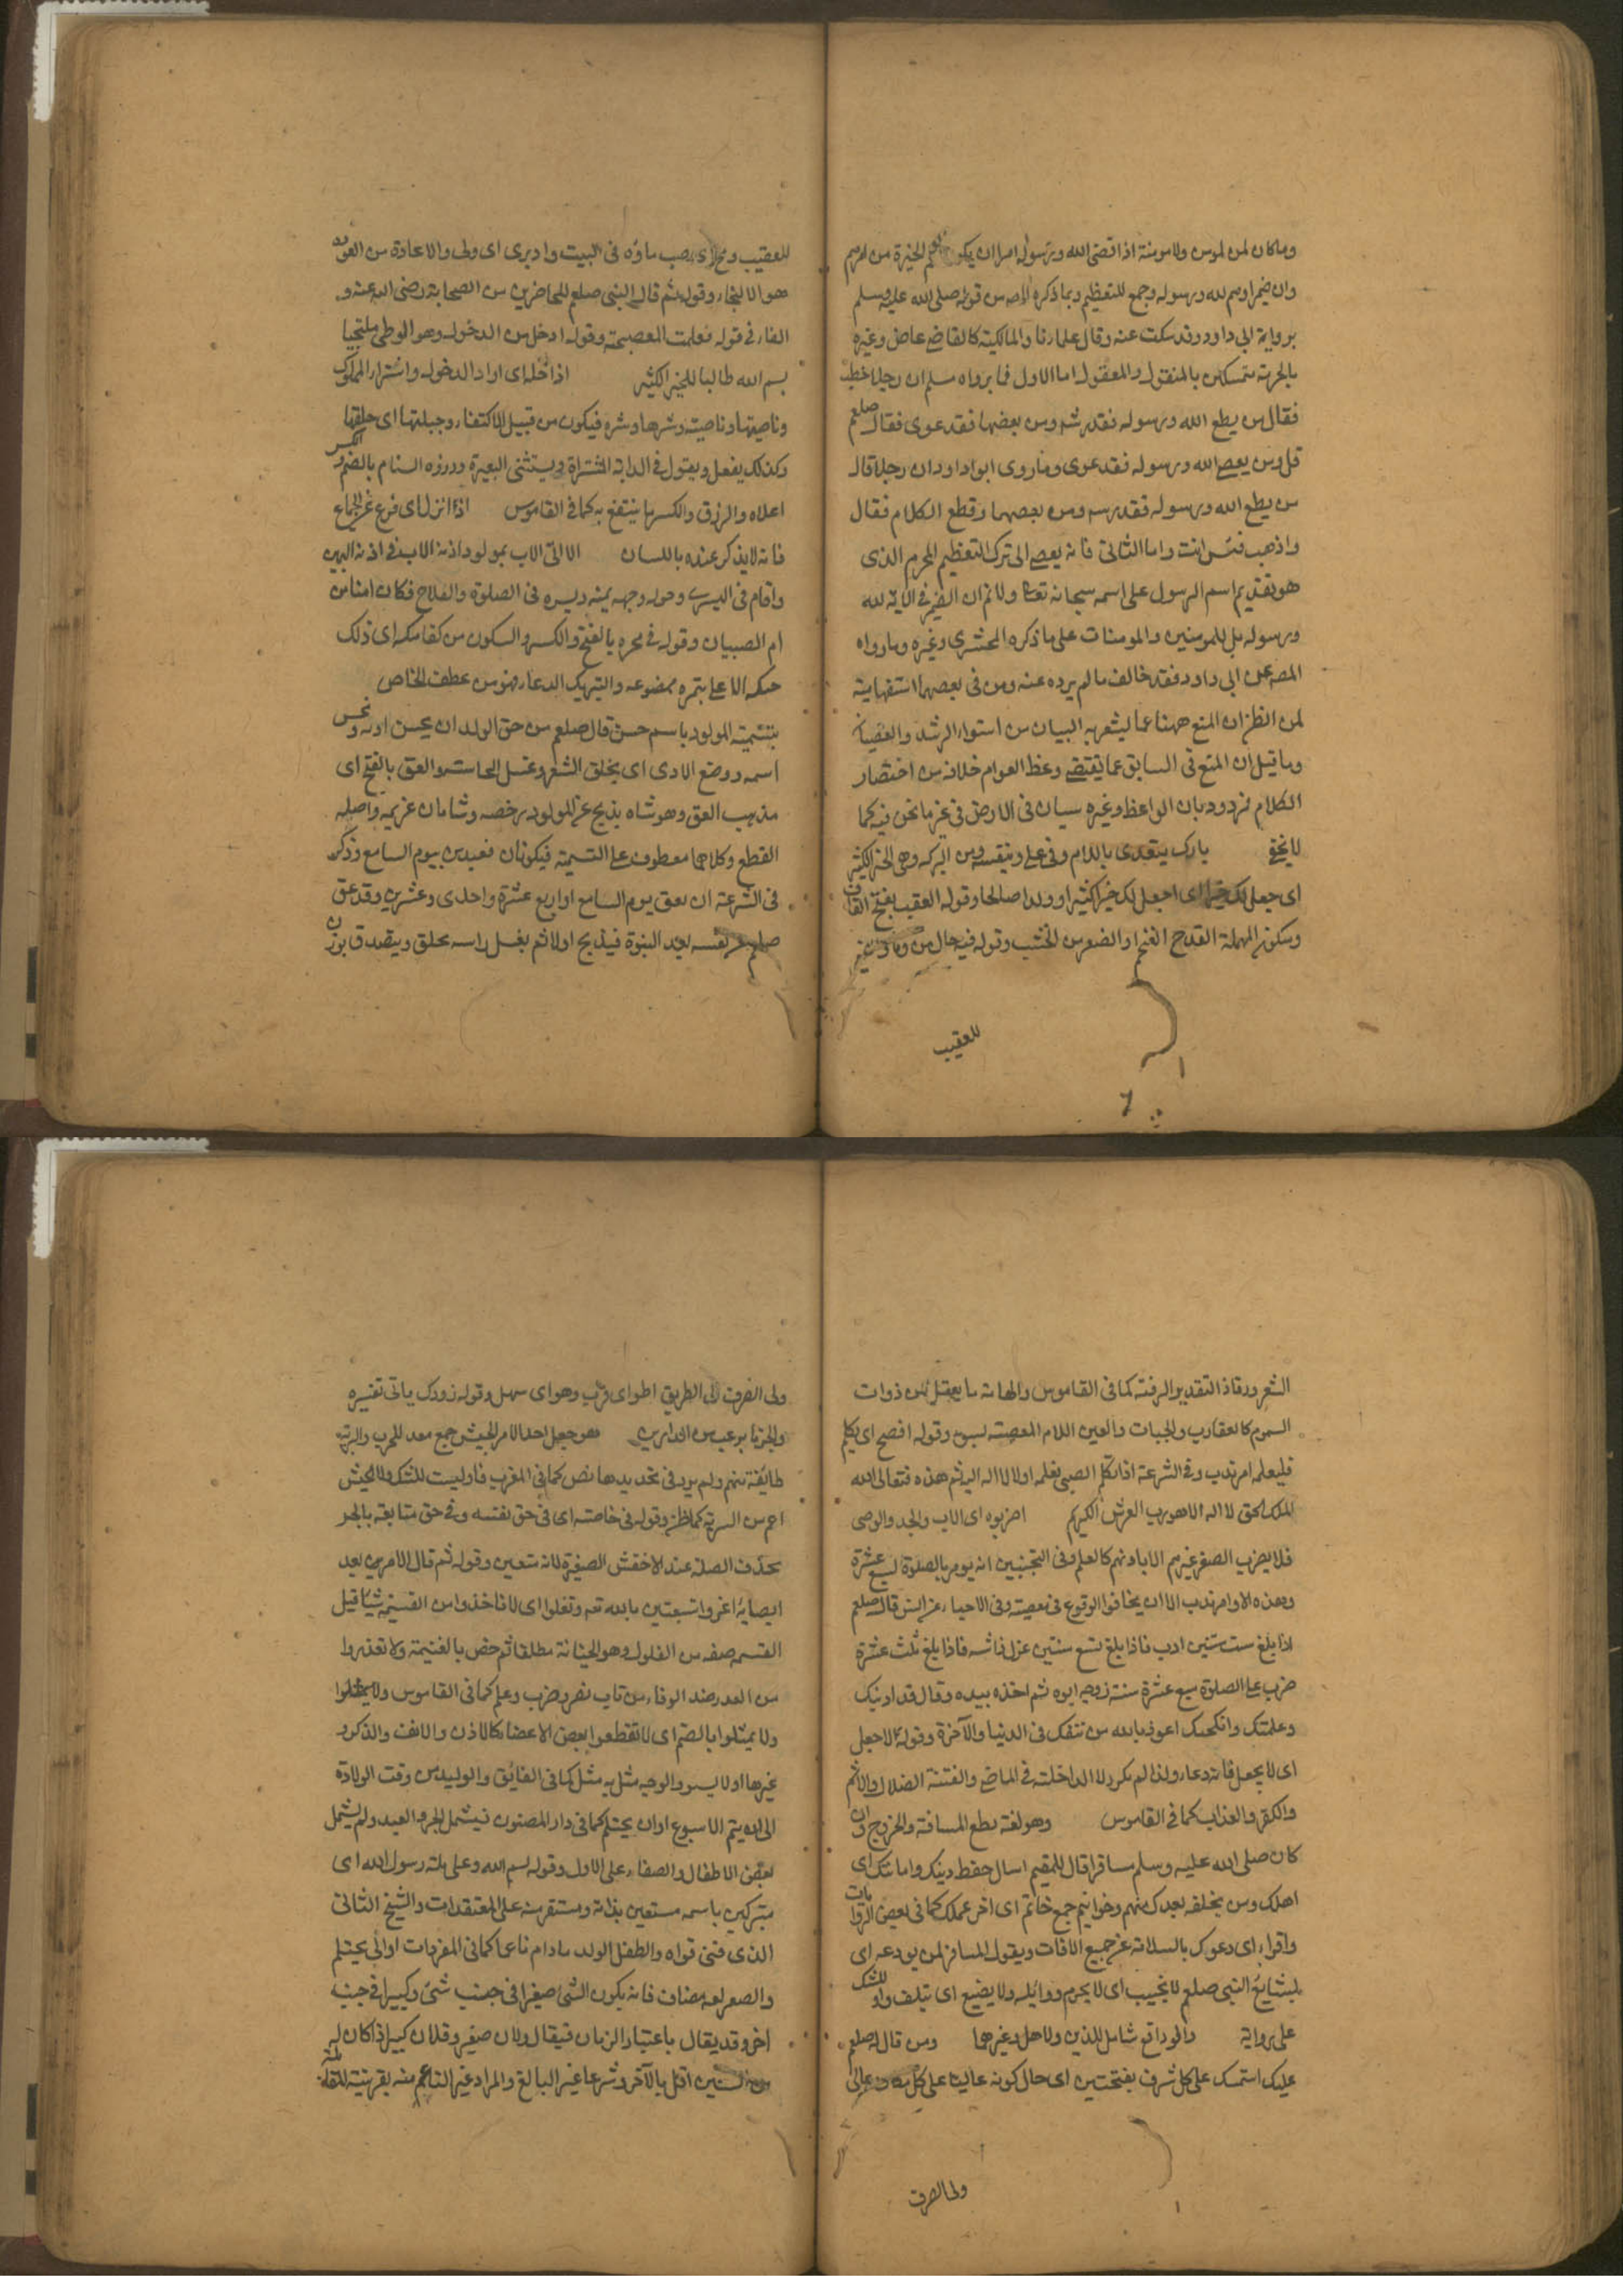 وما كان لمن لمومن ولا مومنة اذا قضى الله ورسوله امرا ان يكون لهم الخيرة من امرهم
وان ضمير اوهم لله ورسوله وجمع للتعظيم وبما ذكره المصـ من قوله صلى الله عليه وسلم
برواية ابى داود وقد سكت عنه وقال علماؤنا والمالكية كالقاضي عاض وغيره
بالحرمة متمسكين بالمنقول والمعقول اما الاول فما يرواه مسلم ان رجلا خطب
فقال من يطع الله ورسوله فقد رشد ومن يعصهما فقد غوى فقال صلعم
قل ومن يعصى الله ورسوله فقد غوى وما روى ابو اداود ان رجلا قال
من يطع الله ورسوله فقد رشد ومن يعصهما وقطع الكلام فقال
واذهب فبئس انت واما الثانى فانه يعصى الى ترك التعظيم المحرم الذى
هو تقديم اسم الرسول على اسمه سبحانه تعا ولا نم ان الضمير فى الآية لله
ورسوله بل للمومنين والمومنات على ما ذكره المخشرى وغيره وما رواه
المصـ عن ابى داود فقد خالف ما لم يرده عنه ومن فى يعصهما استفهامية
لمن انظر ان المنع ههنا عما ليشعر به البيان من استواء الرشد والعصيان
وما قيل ان المنع فى السابق عما تقتضى وعظ العوام خلافه من اختصار
الكلام فمردود بان الواعظ وغيره سيان فى الارض فى غير ما نحن فيه كما
لا يخفى بارك يتعدى باللام وفى على وبنفسه ومن البركة وهى الخير الكثير
اى جعل لك خيرا اى اجعل لك خيرا كثيرا وولدا صالحا وقوله العقيب بفتح القاف
وسكون المهملة القدح الضخم او الضعر من الخشب وقوله فيحال من وما وغير
للعقيب
للعقيب ومج اى يصب ماؤه فى البيت وادبرى اى ولى والاعادة من العوذ
هو الالتجاء وقوله ثم قال النبى صلعم للحاضرين من الصحابة رضى الله عنه و
الفاء فى قوله فعلمت المعصيحة وقوله ادخل من الدخول وهو الوطى ملتجيا
بسم الله طالبا للخير الكثير اذا دخله اى اراد الدخول واشترار المملوك
وناصيتها وناصيته وشرها وشره فيكون من قبيل الاكتفاء وجبلتها اى خلقها
وكذلك يفعل ويقول فى الدابة المشتراة ويستثنى البعيرة وذروه السنام بالضم والكسر
اعلاه والرزق والكسر ما ينتفع به كما فى القاموس اذا انزل اى فرغ عن الجماع
فانه لا يذكر عنده باللسان الا اتى الاب بمولود اذنه الاب فى اذنه اليمين
واقام فى اليسرى وحول وجهه يمينه ويسره فى الصلوة والفلاح فكان امنا من
ام الصبيان وقوله فى حجره بالفتح والكسر والسكون من كفامكه اى ذلك
حنكه الاعلى بتمره ممضوعه والتبريك الدعاء فهو من عطف الخاص
بتسمية المولود باسم حسن قال صلعم من حق الولد ان يحسن ادبه ويحسن
اسمه ووضع الاذى اى يحلق الشعر وغسل الجاست والعق بالفتح اى
مذهب العق وهو شاه يذبح عن المولود رخصه وشاتان عزيمه واصله
القطع وكلاهما معطوف على التسمية فيكونان مقيدين بيوم السابع وذكر
فى الشرعة ان يعق يوم السابع او اربع عشرة واحدى وعشرين وقد عق
صلعم عن نفسه بعد النبوة فيذبح اولا ثم يغسل راسه يحلق ويتصدق بوزن
الشعر ورقا ذا التقدير الرفته كما فى القاموس والهامة ما يعقل من ذوات
السموم كالعقارب والحيات والعين اللام المعصية لبسوء وقوله افصح اى يكلم
فليعلمه امر ندب وفى الشرعة اذا تكلم الصبى يعلمه اولا لا اله الا الله ثم هذه فتعالى الله
الملك الحق لا اله الا هو رب العرش الكريم اضربوه اى الاب والجد والوصى
فلا يضرب الصغير غيرهم الا باذنهم كالعلم وفى التجنيس انه يومر بالصلوة لسبع عشرة
وهذه الاوامر ندب الا ان يخافوا الوقوع فى معصية وفى الاحياء عن انس قال صلعم
اذا بلغ ست سنين ادب فاذا بلغ تسع سنين عزل فراشه فاذا بلغ ثلث عشرة
ضرب على الصلوة سبع عشرة سنة زوجه ابوه ثم اخذه بيده وقال قد ادبتك
وعلمتك وانكحتك اعوذ بالله من فتنتك فى الدنيا والآخرة وقوله الا جعل
اى لا يجعل فانه دعاء ولذا لم يكرر لا الداخلة فى الماضى والفتنة الضلال والاثم
والكفر والعذاب كما فى القاموس وهو لغة قطع المسافة والخروج وان
كان صلى الله عليه وسلم مسافرا قال للمقيم اسال حفظ دينك وامانتك اى
اهلك ومن يخلفه بعدك منهم وخواتيم جمع خاتم اى اخر عملك كما فى بعض الروايات
واقراء اى دعوك بالسلامة عن جميع الافات ويقول المسافر لمن يودعه اى
لبشايع النبى صلعم لا يخيب اى لا يحرم ووائله ولا يضيع اى يتلف واو للشك
على رواية والودائع شامل للدين ولاهل وغيرهما ومن قال له صلعم
عليك استمسك على كل شرف بفتحتين اى حال كونه عاليا على كل مكان عالى
ولى الصرف
ولى الصرف الى الطريق اطو اى قرب وهو اى سهل وقوله زودك ياتى تفسيره
والخير ما يرعب من الدارين هو جعل احدا لامر الجيش جمع معد للحرب والسرية
طايفة منهم ولم يرد فى تحديدها نص كما فى المغرب فاو ليست للشك والجيش
اعم من السرية كما ظن وقوله فى خاصته اى فى حق نفسه وفى حق متابعه بالجر
بحذف الصلة عند الاخفش الصغير لانه متعين وقوله ثم قال الامرين بعد
ايصايه اغزوا تسبعتين بالله تعم وتغلوا اى لا تاخذوا من القسيمة شيئا قيل
القسم صفه من الغلول وهو الخيانة مطلقا ثم خص بالغنيمة ولا تغدروا
من الغدر ضد الوفاء من باب نصر وضرب وعلم كما فى القاموس ولا تمثلوا
ولا يمثلوا بالضم اى لا تقطعوا بعض الاعضاء كالاذن والانف والذكر و
غيرها او لا يسود الوجه مثل به مثل كما فى الفايق والوليد من وقت الولادة
الى ان يتم الاسبوع او ان يحتلم كما فى دار المصنون فيشمل الحر والعبد ولم يشمل
بعض الاطفال والصغار على الاول وقوله بسم الله وعلى ملة رسول الله اى
متبركين باسمه مستعين بذاته ومستقرين على المعتقدات والشيخ الثانى
الذى فنى قواه والطفل الولد ما دام ناعما كما فى المفردات او الى يحتلم
والصغر لعه مضاف فانه يكون الشئ صغيرا فى جنب شئ وكبيرا فى جنب
اخر وقد يقال باعتبار الزمان فيقال فلان صغير وفلان كبير اذا كان له
من السنين اقل بالآخر وشرعا غير البالغ والمراد غير الناعم منه بقرينة المقابلة